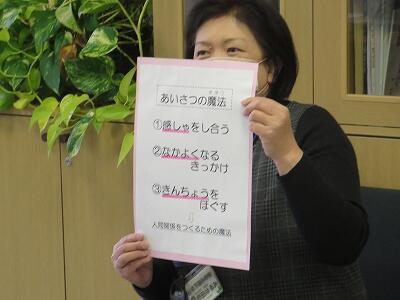 あいさつの魔法
①感しゃをし合う
②なかよくなる
きっかけ
③きんちょうを
ほぐす
⇩
人間関係をつくるための魔法